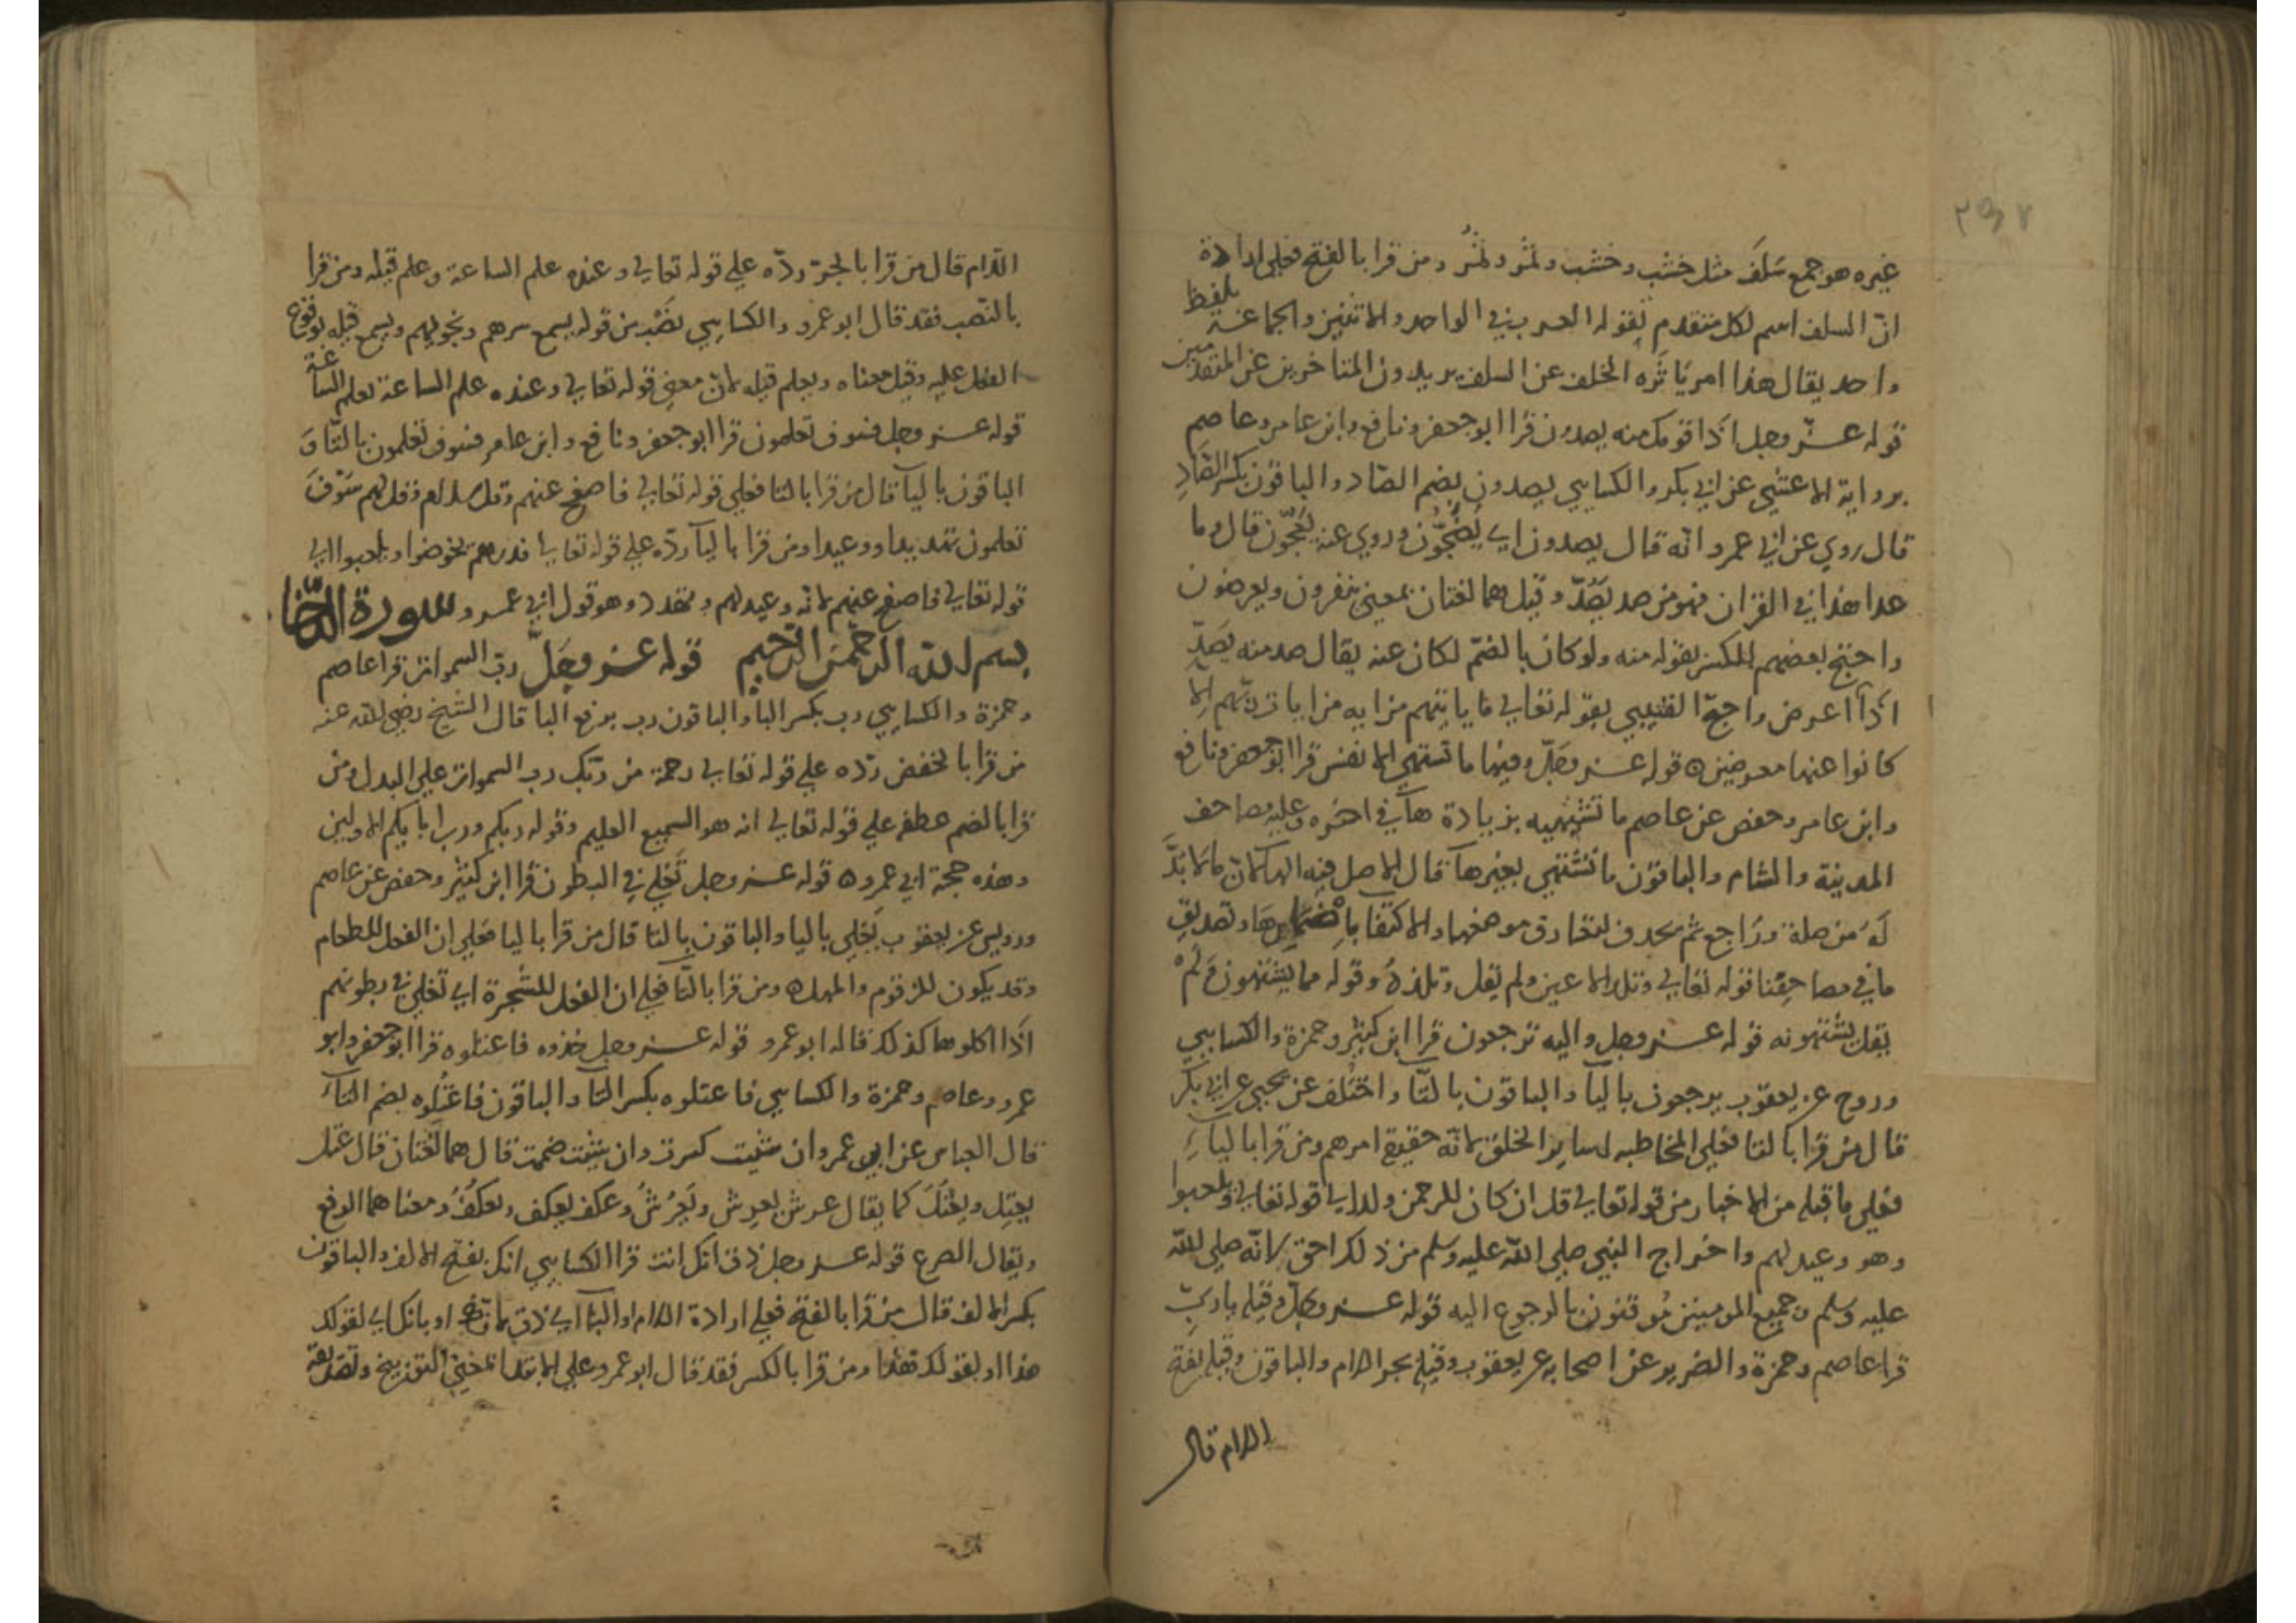 غيره هو جمع سَلَف مثل خشب وخشب وثمر وثمُر ومن قرا بالفتح فعلى ارادة
انّ السلف اسم لكل متقدم لقوله العرب في الواحد والاثنين والجماعة بلفظ
واحد يقال هذا امر يَاثره الخلف عن السلف يريدون المتاخرين عن المتقدمين
قوله عز وجل اذا قومك منه يصدون قرا ابو جعفر ونافع وابن عامر وعاصم
برواية الاعشي عن ابي بكر والكسايي يصدون بضم الصاد والباقون بكسر الصّادِ
قال روي عن ابي عمرو انه قال يصدون اي يضجّون وروي عنه يعجّون قال وما
عدا هذا في القران فهو من صد يصُدّ وقيل هما لغتان بمعني ينفرون ويعرضون
واحتج بعضهم للكسر بقوله منه ولو كان بالضم لكان عنه يقال صد منه يصدّ
اذا اعرض واحتجّ القتيبي بقوله تعالي ما ياتيهم من اية من ايات ربهم الا
كانوا عنها معرضين ٥ قوله عز وجل وفيها ما تشتهي الانفس قرا ابو جعفر ونافع
وابن عامر وحفص عن عاصم ما تشتهيه بزيادة هآ في اخره وعليه مصاحف
المدينة والشام والباقون ما تشتهي بغيرها قال الاصل فيه الهآ لانّ ما لا بدّ
لَهُ من صلة وراجع ثم يحذف لتعارف موضعها والاكتفا باضمارها وتصديق
ما في مصاحفنا قوله تعالي وتلذ الاعين ولم يقل وتلذهُ وقوله مما يشتهون ولم
يقل يشتهونه قوله عز وجل واليه ترجعون قرا ابن كثير وحمزة والكسايي
وروح عن يعقوب يرجعون باليآ والباقون بالتّا واختُلف عن يحيي عن ابي بكر
قال من قرا بالتا فعلي المخاطبه لساير الخلق لانّه حقيقة امرهم ومن قرا بالياءِ
فعلي ما قبله من الاخبار من قوله تعالي قل ان كان للرحمن ولد الي قوله تعالي ويلعبوا
وهو وعيد لهم واخراج النبي صلي اللّه عليه وسلم من ذلك احق لانّه صلي اللّه
عليه وسلم وجميع المومنين مُوقنون بالرجوع اليه قوله عز وجلّ وقيله يا ربّ
قرا عاصم وحمزة والضرير عن اصحابه عن يعقوب وقيلِه بجر اللام والباقون وقيلَه بفتح
اللام قال
اللام قال من قرا بالجر ردّه علي قوله تعالي وعنده علم الساعة وعلم قيله ومن قرا
بالنّصب فقد قال ابو عمرو والكسايي نصْب من قوله يسمع سرهم ونجويهم ويسمع قيله بوقوع
الفعل عليه وقيل معناه ويعلم قيله لانّ معني قوله تعالي وعنده علم الساعة يعلم الساعة
قوله عز وجل فسوف تعلمون قرا ابو جعفر ونافع وابن عامر فسوف تعلمون بالتّا وَ
الباقون باليآ قال من قرا بالتا فعلي قوله تعالي فاصفح عنهم وقل سلام وقل لهم سَوْفَ
تعلمون تهديدا ووعيدا ومن قرا باليآ ردّه علي قوله تعالي فذرهم يخوضوا ويلعبوا الي
قوله تعالي فاصفح عنهم لانه وعيد لهم وتهدد وهو قول ابي عمرو سورة الدّخان
بسم اللّه الرّحمن الرّحيم قوله عز وجَلّ ربّ السموات قرا عاصم
وحمزة والكسايي رب بكسر البا والباقون رب برفع البا قال الشيخ رضي اللّه عنه
من قرا بالخفض ردّه علي قوله تعالي رحمة من ربّك رب السموات علي البدل ومن
قرا بالضم عطفه علي قوله تعالي انه هو السميع العليم وقوله ربكم ورب ابايكم الاولين
وهذه حجة ابي عمرو ٥ قوله عز وجل تَغلي في البطون قرا ابن كثير وحفص عن عاصم
ورويس عن يعقوب يَغلي باليا والباقون بالتا قال من قرا باليا فعلي ان الفعل للطعام
وقد يكون للزقوم والمهل ٥ ومن قرا بالتّا فعلي ان الفعل للشّجرة اي تغلي في بطونهم
اذَا اكلوها كذلك قاله ابو عمرو قوله عز وجل خذوه فاعتلوه قرا ابو جعفر وابو
عمرو وعاصم وحمزة والكسايي فاعتلوه بكسر التا والباقون فاعتُلوه بضم التآءِ
قال العباس عن ابي عمرو ان شيت كسرت وان شيت ضممت قال هما لغتان قال عتل
يعتِل ويعتُلُ كما يقال عرش يعرِش ويَعرُشُ وعكف يعكِف ويعكُفُ ومعناهما الدفع
ويقال الصرع قوله عز وجل ذق انك انت قرا الكسايي انك بفتح الالف والباقون
بكسر الالف قال من قرا بالفتح فعلي ارادة اللام او البآ اي ذق لانك او بانك اي لقولك
هذا او بقولك هذا ومن قرا بالكسر فقد قال ابو عمرو علي الابتدا بمعني التوبيخ